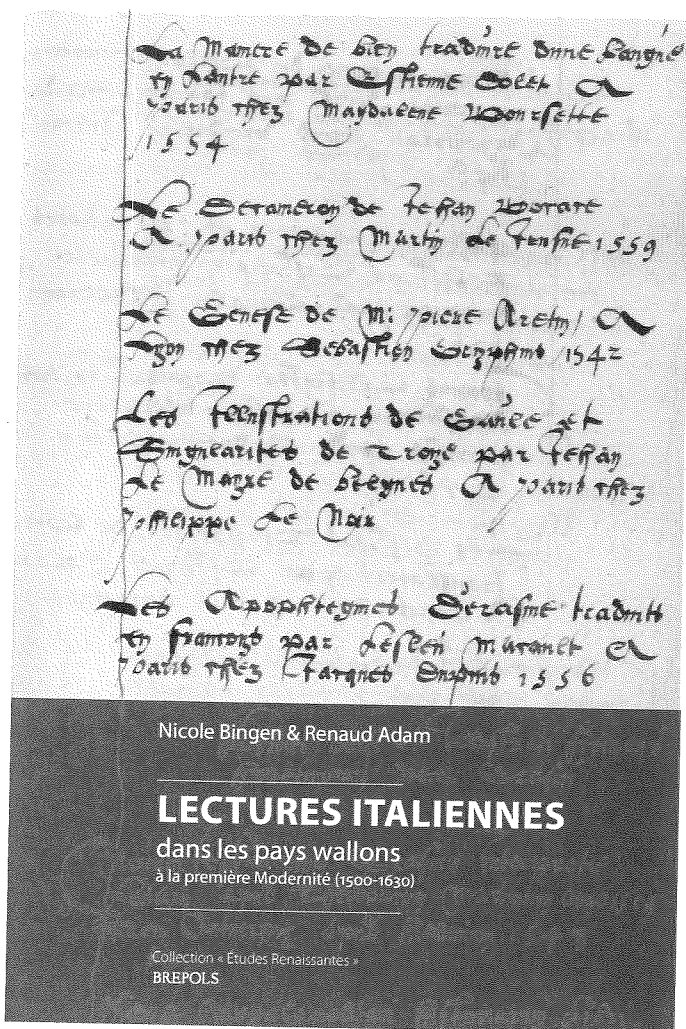 La Maniere de bien traduire d'une langue
en l'autre par Estienne Dolet A
paris chez Magdalene Boursette
1554
Le Decameron de Jehan Bocace
A paris chez Martin le Jeusne 1559
Le Genese de M: piere Aretin / A
lyon chez Sebastien Gryphius 1542
Les Illustrations de Gaule et
Singularites de Troye par Jehan
Le Mayre de belges A paris chez
philippe Le Noir
Les Apophtegmes D'erasme traduits
en francois par Lesleu Macault A
paris chez Jacques Dupuis 1556
Nicole Bingen & Renaud Adam
LECTURES ITALIENNES
dans les pays wallons
à la première Modernité (1500-1630)
Collection « Études Renaissantes »
BREPOLS